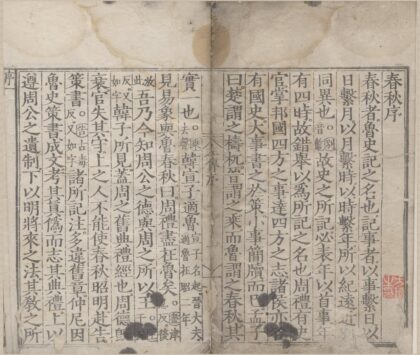 春秋序
春秋者魯史記之名也記事者以事繫日以
日繫月以月繫時以時繫年所以紀遠近
同異也故史之所記必表年以首事年
有四時故錯舉以爲所記之名也周禮有史
官掌邦國四方之事達四方之志諸侯亦
有國史大事書之於策小事簡牘而已孟子
曰楚謂之檮杌晉謂之乘而魯謂之春秋其
實一也韓宣子適魯宣子名起晉大夫
見易象與魯春秋曰周禮盡在魯矣
吾乃今知周公之德與周之所以王
韓子所見蓋周之舊典禮經也周德旣
衰官失其守上之人不能使春秋昭明赴告
策書諸所記注多違舊章仲尼因
魯史策書成文考其真僞而志其典禮上以
遵周公之遺制下以明將來之法其教之所